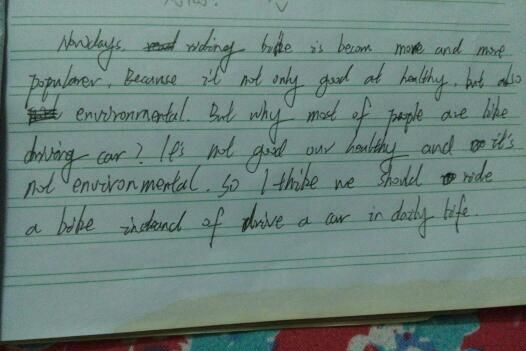 Nowadays, riding bike is becom more and more
popularer. Because it not only good at healthy, but also
environmental. But why most of people are like
driving car? It's not good our healthy and it's
not environmental. So I thike we should ride
a bike insteand of drive a car in daily life.